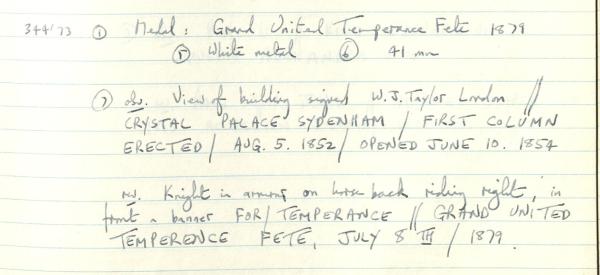 344'73 ① Medal: Grand United Temperance Fete 1879
⑤ White metal ⑥ 41 mm
⑦ obv. View of building signed W.J. Taylor London //
CRYSTAL PALACE SYDENHAM / FIRST COLUMN
ERECTED / AUG. 5. 1852 / OPENED JUNE 10. 1854
rev. Knight in armour on horse back riding right, in
front a banner FOR / TEMPERANCE // GRAND UNITED
TEMPERENCE FETE, JULY 8TH / 1879.